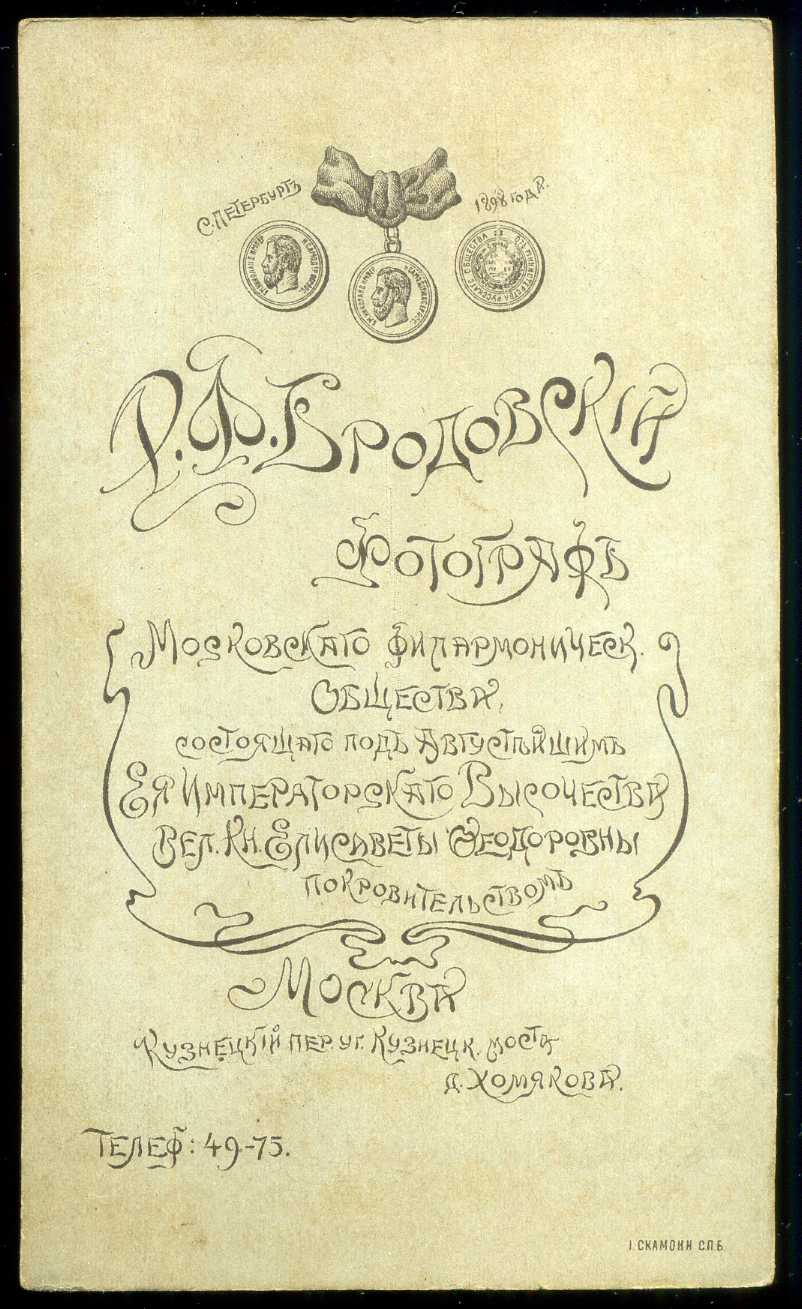 С. ПЕТЕРБУРГЪ 1898 ГОДА.
Р. Ф. БРОДОВСКІЙ
ФОТОГРАФЪ
МОСКОВСКАГО ФИЛАРМОНИЧЕСК.
ОБЩЕСТВА,
СОСТОЯЩАГО ПОДЪ АВГУСТѢЙШИМЪ
ЕЯ ИМПЕРАТОРСКАГО ВЫСОЧЕСТВА
ВЕЛ. КН. ЕЛИСАВЕТЫ ѲЕОДОРОВНЫ
ПОКРОВИТЕЛЬСТВОМЪ
МОСКВА
КУЗНЕЦКІЙ ПЕР. УГ. КУЗНЕЦК. МОСТА
Д. ХОМЯКОВА.
ТЕЛЕФ: 49-75.
І. СКАМОНИ С.П.Б.